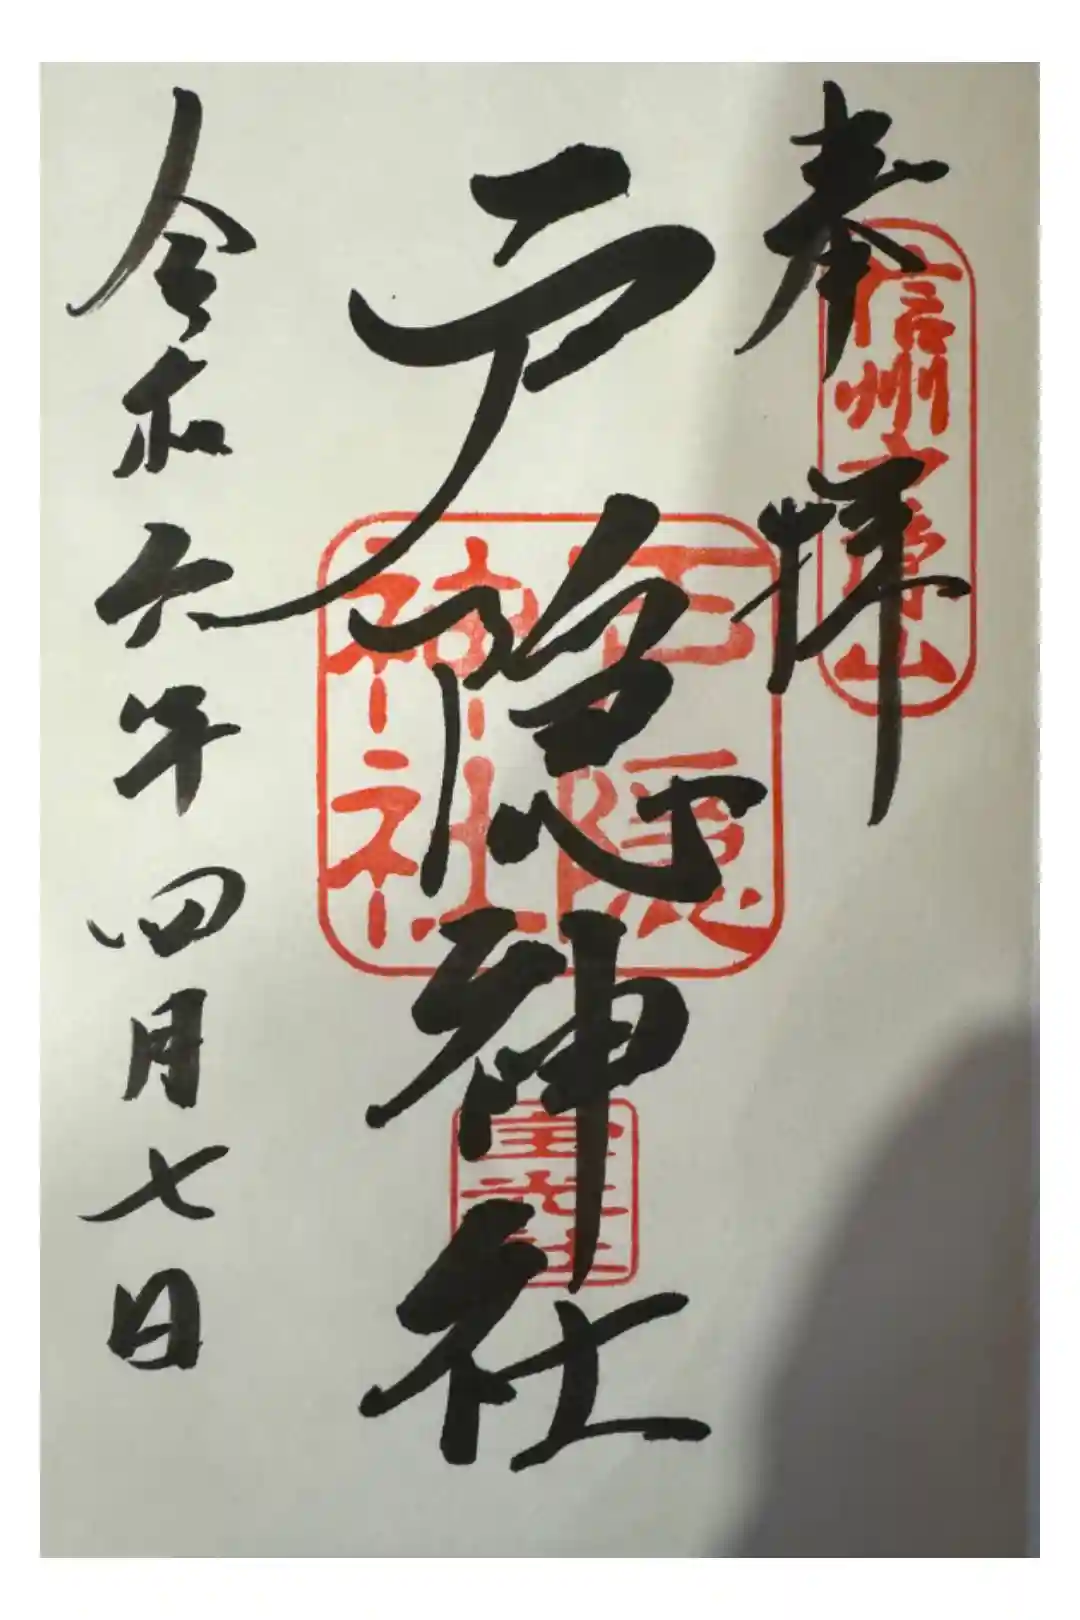 奉拝
信州戸隠山
戸隠神社
戸隠神社
宝光社
令和六年四月七日